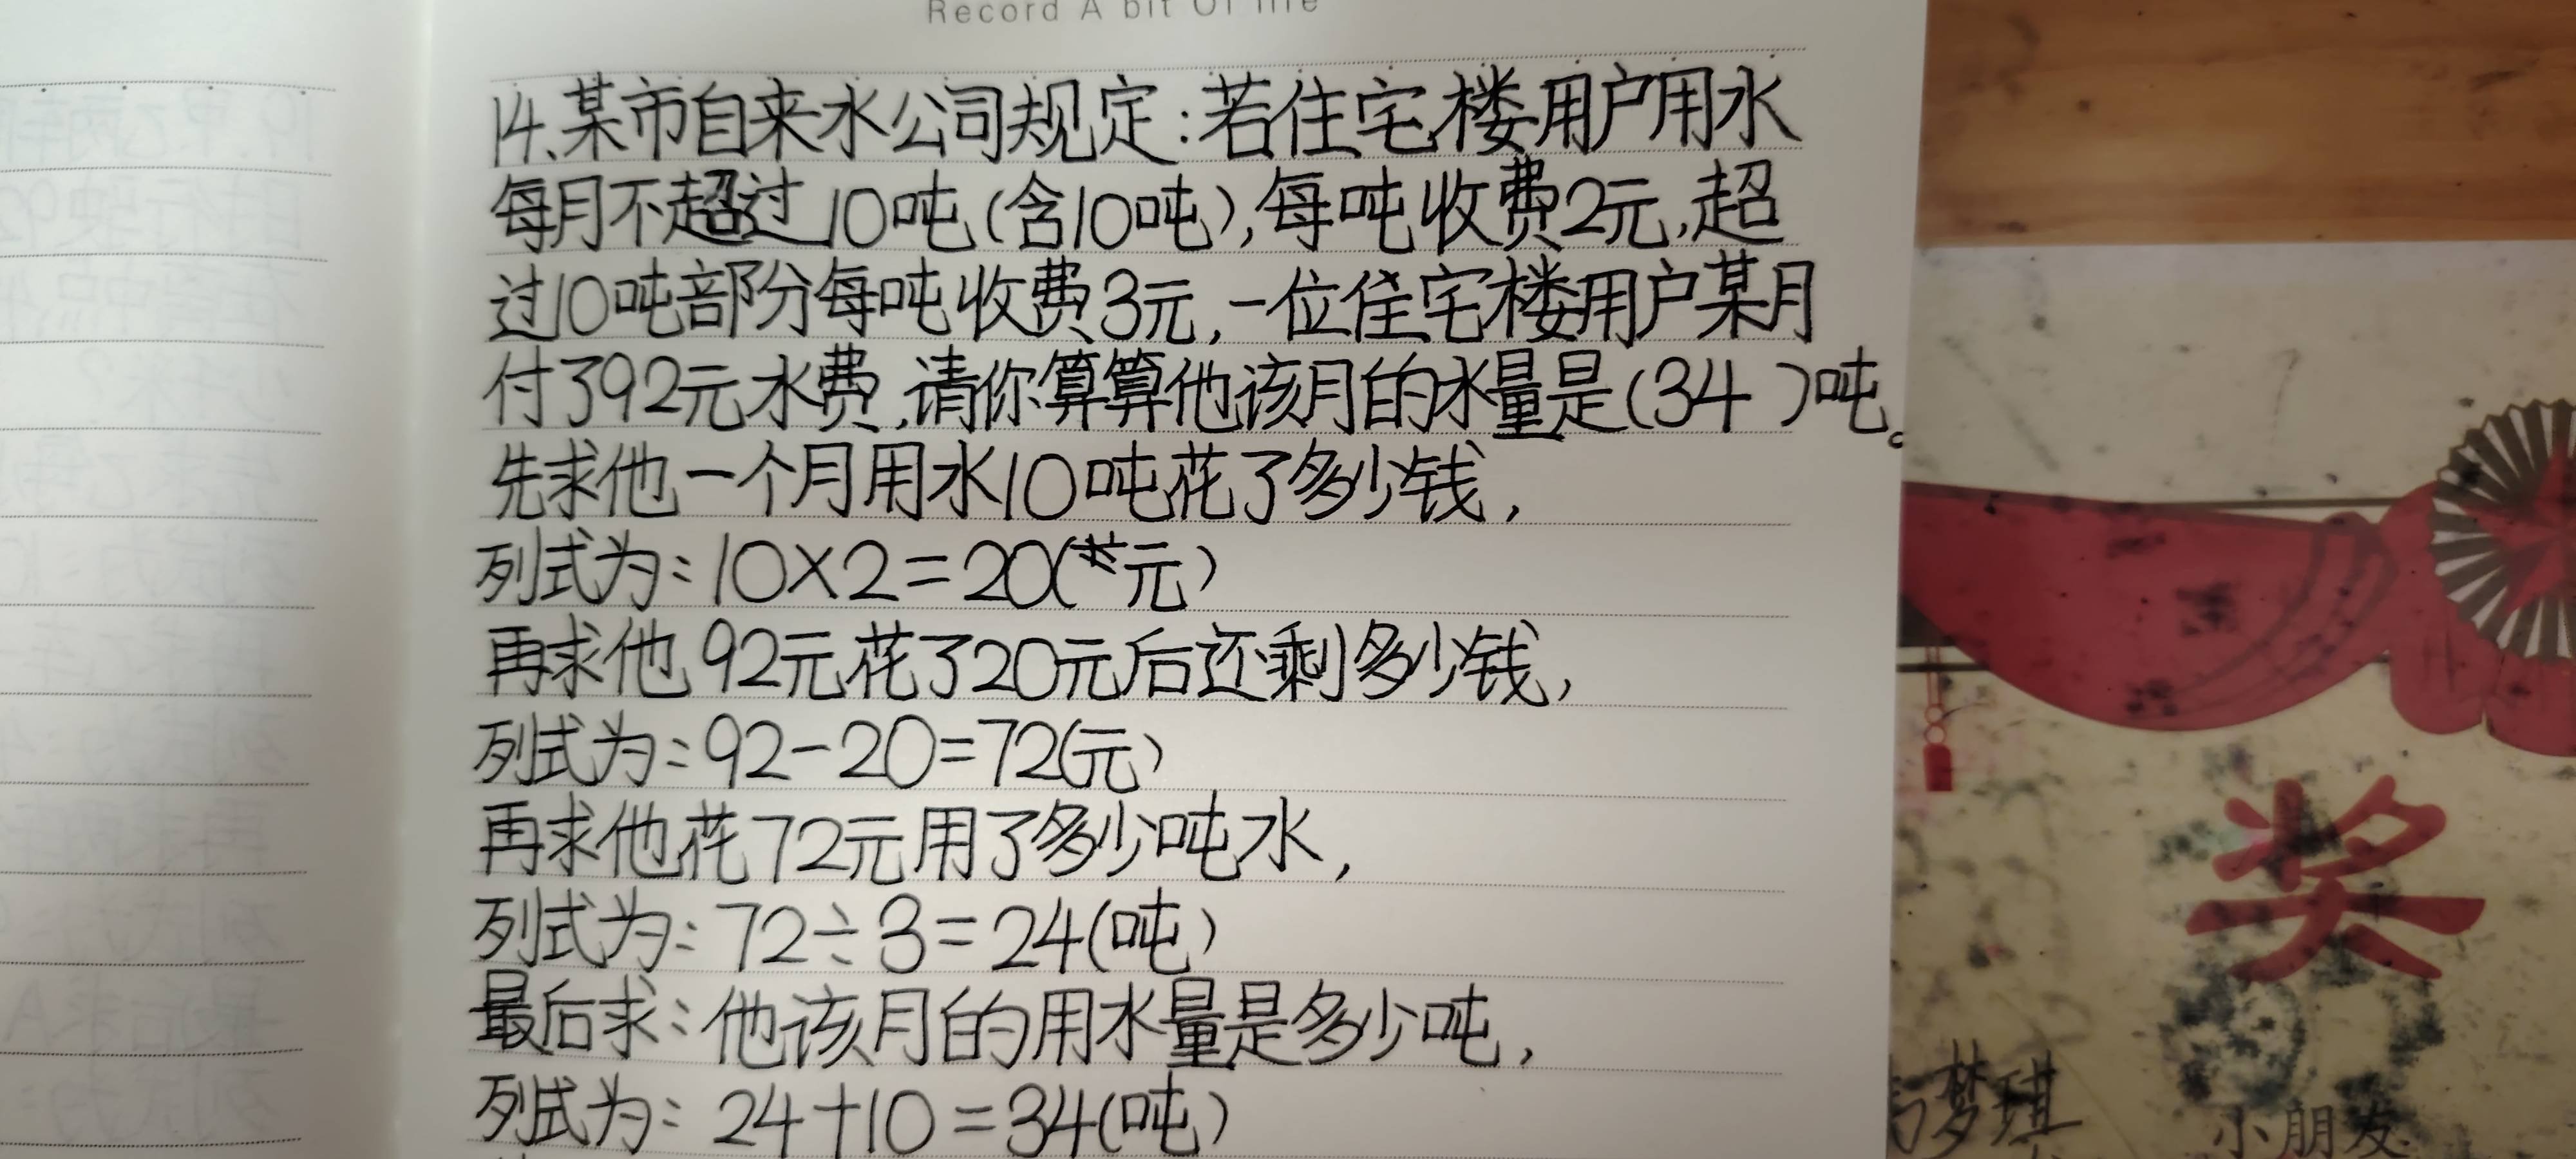 Record A bit Of life
14.某市自来水公司规定:若住宅楼用户用水
每月不超过10吨(含10吨),每吨收费2元,超
过10吨部分每吨收费3元,一位住宅楼用户某月
付了92元水费,请你算算他该月的水量是(34)吨。
先求他一个月用水10吨花了多少钱,
列式为:10×2=20(元)
再求他92元花了20元后还剩多少钱,
列式为:92-20=72(元)
再求他花72元用了多少吨水,
列式为:72÷3=24(吨)
最后求:他该月的用水量是多少吨,
列式为:24+10=34(吨)
奖
梦琪
小朋友